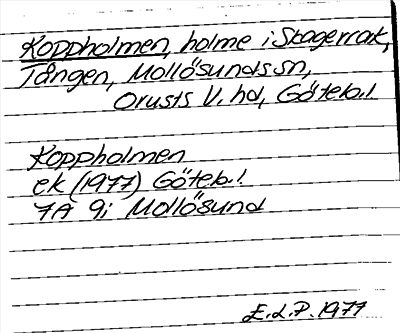 Koppholmen, holme i Skagerrak,
Tången, Mollösunds sn,
Orusts V. hd, Göteb.l.
Koppholmen
ek (1977) Göteb.l.
7A 9i Mollösund
E.L.P. 1977